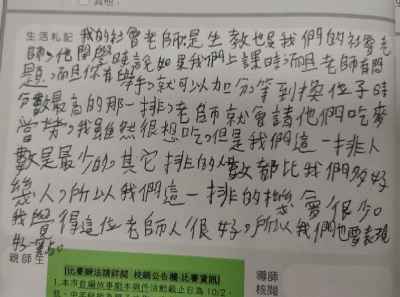 生活札記 我的社會老師是生教也是我們的社會老
師,他開學時說如果我們上課時而且老師有問
題,而且你有舉手,就可以加分,等到換位子時
分數最高的那一排,老師就會請他們吃麥
當勞,我雖然很想吃,但是我們這一排人
數是最少的,其它排的人數都比我們多好
幾人,所以我們這一排的機會很少。
我覺得這位老師人很好,所以我們也要表現
好一點。
親師生
(比賽辦法請詳閱 校網公告欄-比賽資訊)
導師
核閱